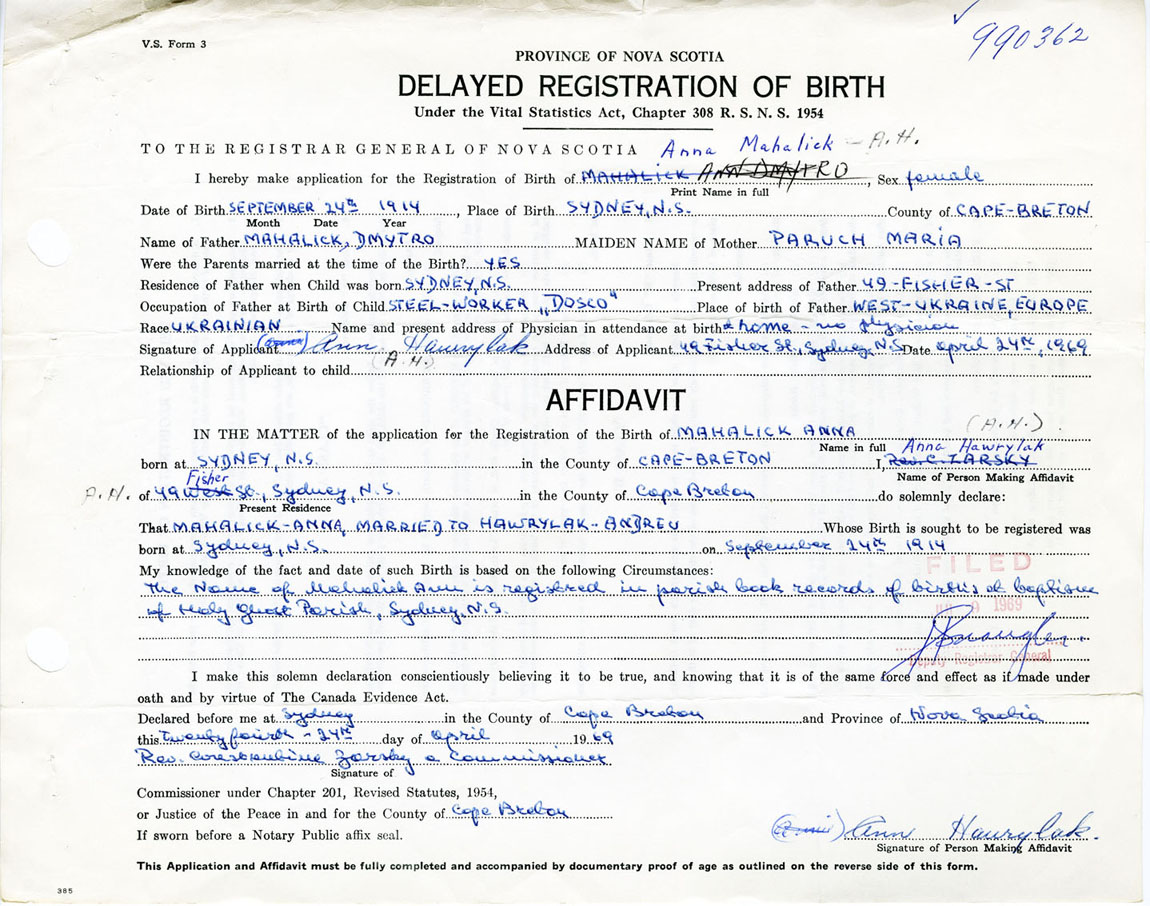 990362
V.S. Form 3
PROVINCE OF NOVA SCOTIA
DELAYED REGISTRATION OF BIRTH
Under the Vital Statistics Act, Chapter 308 R. S. N. S. 1954
TO THE REGISTRAR GENERAL OF NOVA SCOTIA Anna Mahalick - A.H.
I hereby make application for the Registration of Birth of MAHALICK ANN DMYTRO, Sex female
Print Name in full
Date of Birth SEPTEMBER 24th 1914, Place of Birth SYDNEY, N.S. County of CAPE-BRETON
Month Date Year
Name of Father MAHALICK, DMYTRO MAIDEN NAME of Mother PARUCH MARIA
Were the Parents married at the time of the Birth? YES
Residence of Father when Child was born SYDNEY, N.S. Present address of Father 49-FISHER-ST
Occupation of Father at Birth of Child STEEL-WORKER „DOSCO" Place of birth of Father WEST-UKRAINE, EUROPE
Race UKRAINIAN Name and present address of Physician in attendance at birth at home - no physician
Signature of Applicant Ann Hawrylak Address of Applicant 49 Fisher St., Sydney, N.S. Date April 24th, 1969
(A.H.)
Relationship of Applicant to child
AFFIDAVIT
(A.H.)
IN THE MATTER of the application for the Registration of the Birth of MAHALICK ANNA
Name in full Anna Hawrylak
born at SYDNEY, N.S. in the County of CAPE-BRETON I, Rev. C. ZARSKY
Name of Person Making Affidavit
Fisher
A.H. of 49 West St., Sydney, N.S. in the County of Cape Breton do solemnly declare:
Present Residence
That MAHALICK-ANNA, MARRIED TO HAWRYLAK-ANDREW Whose Birth is sought to be registered was
born at Sydney, N.S. on September 24th 1914
My knowledge of the fact and date of such Birth is based on the following Circumstances:
FILED
The Name of Mahalick Ann is registered in parish book records of births & baptisms
of Holy Ghost Parish, Sydney, N.S.
1969
Deputy Registrar General
I make this solemn declaration conscientiously believing it to be true, and knowing that it is of the same force and effect as if made under
oath and by virtue of The Canada Evidence Act.
Declared before me at Sydney in the County of Cape Breton and Province of Nova Scotia
this twenty fourth - 24th day of April 1969
Rev. Constantine Zarsky a Commissioner
Signature of
Commissioner under Chapter 201, Revised Statutes, 1954,
or Justice of the Peace in and for the County of Cape Breton
If sworn before a Notary Public affix seal.
Ann Hawrylak.
Signature of Person Making Affidavit
This Application and Affidavit must be fully completed and accompanied by documentary proof of age as outlined on the reverse side of this form.
385